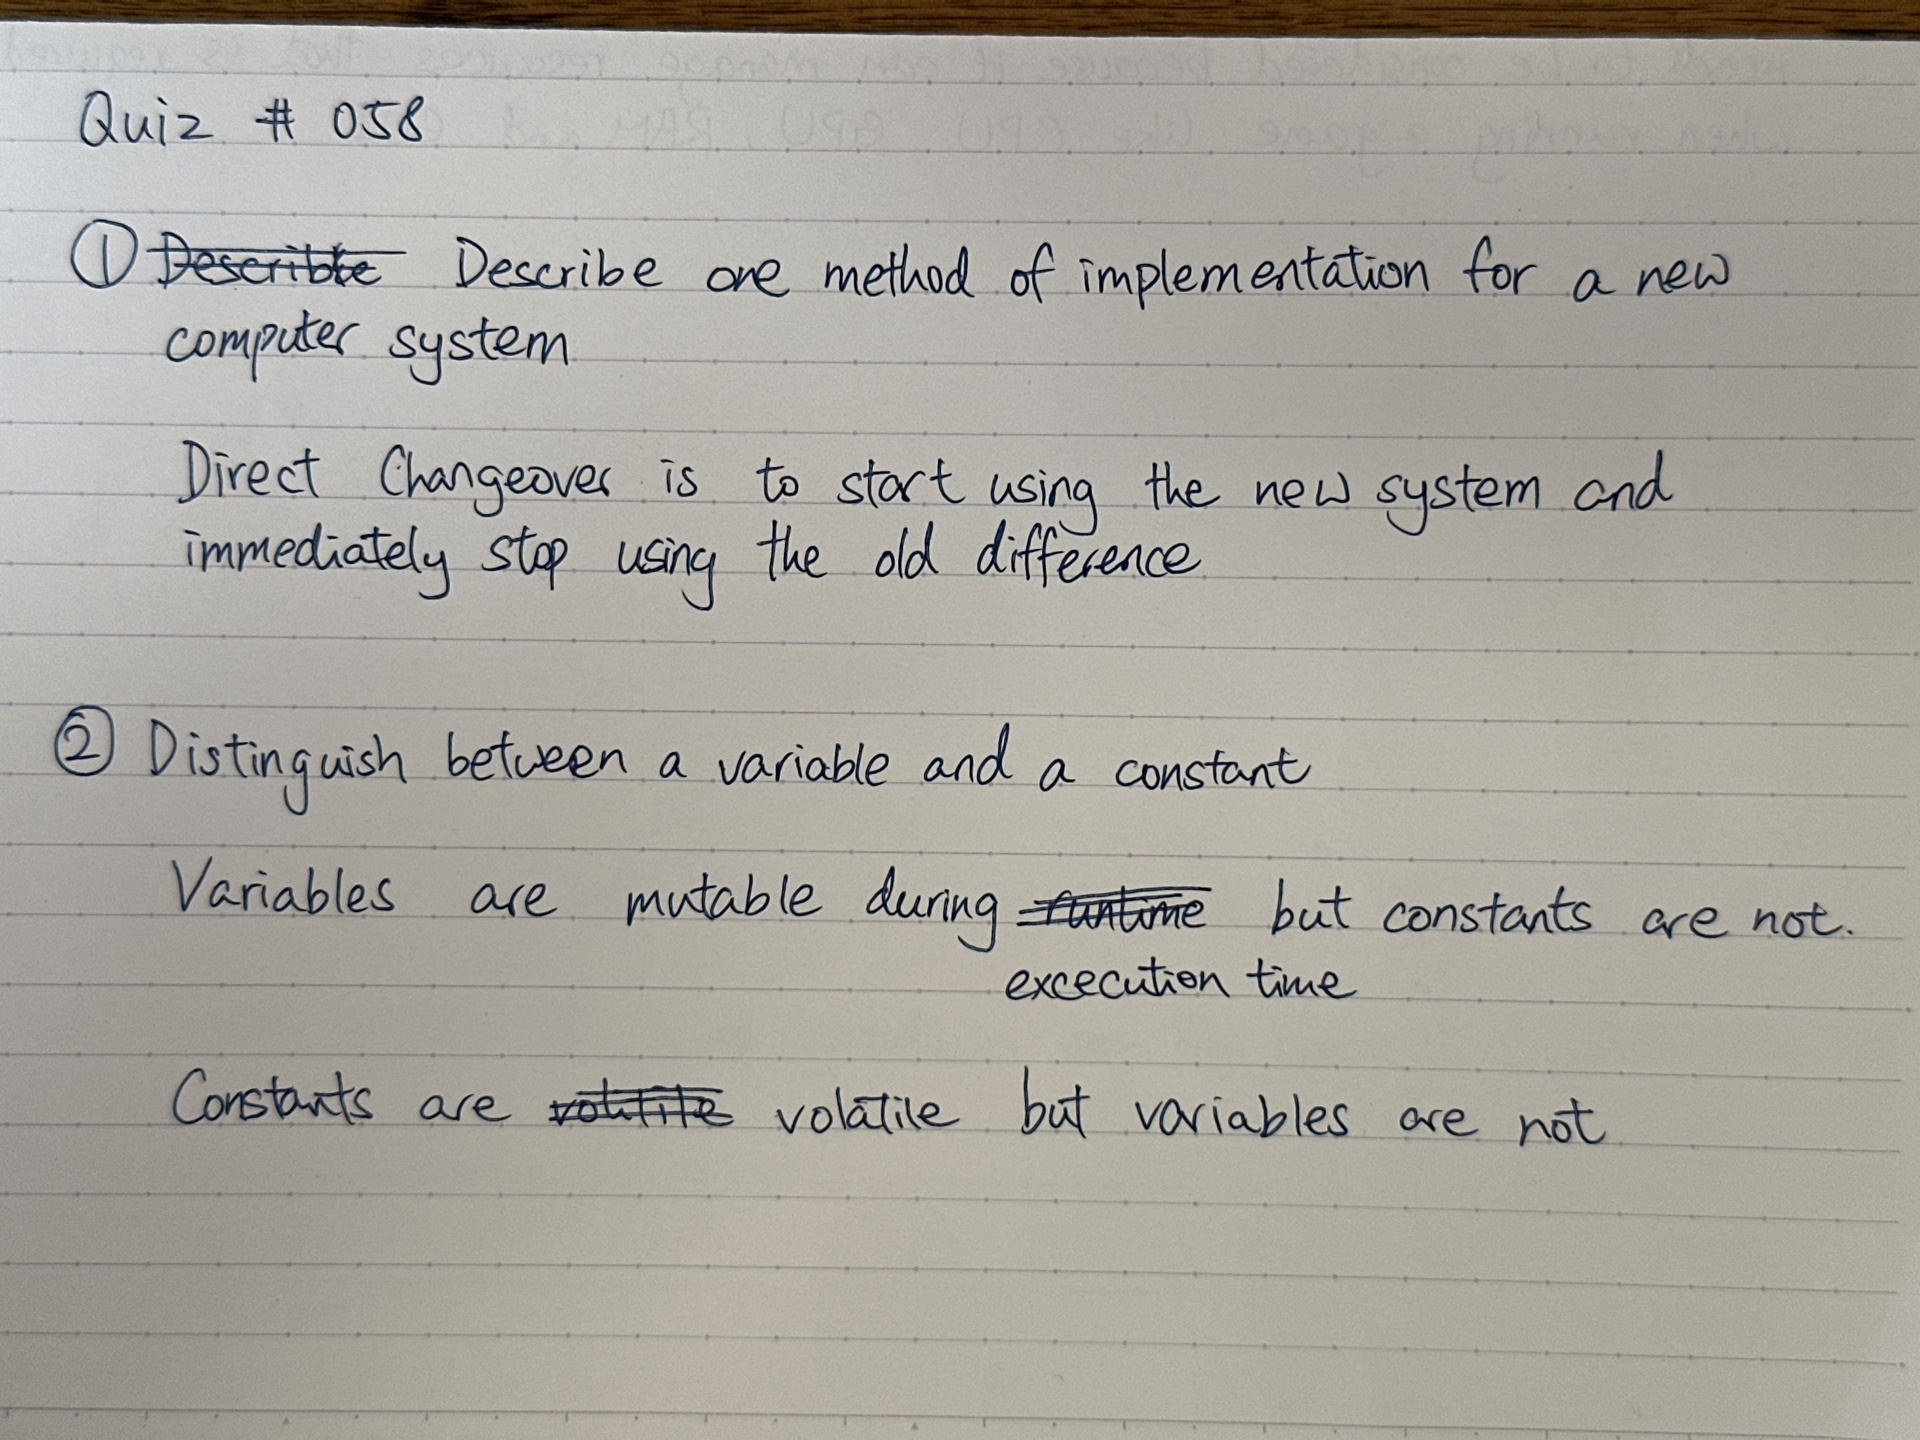 Quiz # 058
① Describte Describe one method of implementation for a new
computer system
Direct Changeover is to start using the new system and
immediately stop using the old difference
② Distinguish between a variable and a constant
Variables are mutable during runtime but constants are not.
excecution time
Constants are volatile but variables are not